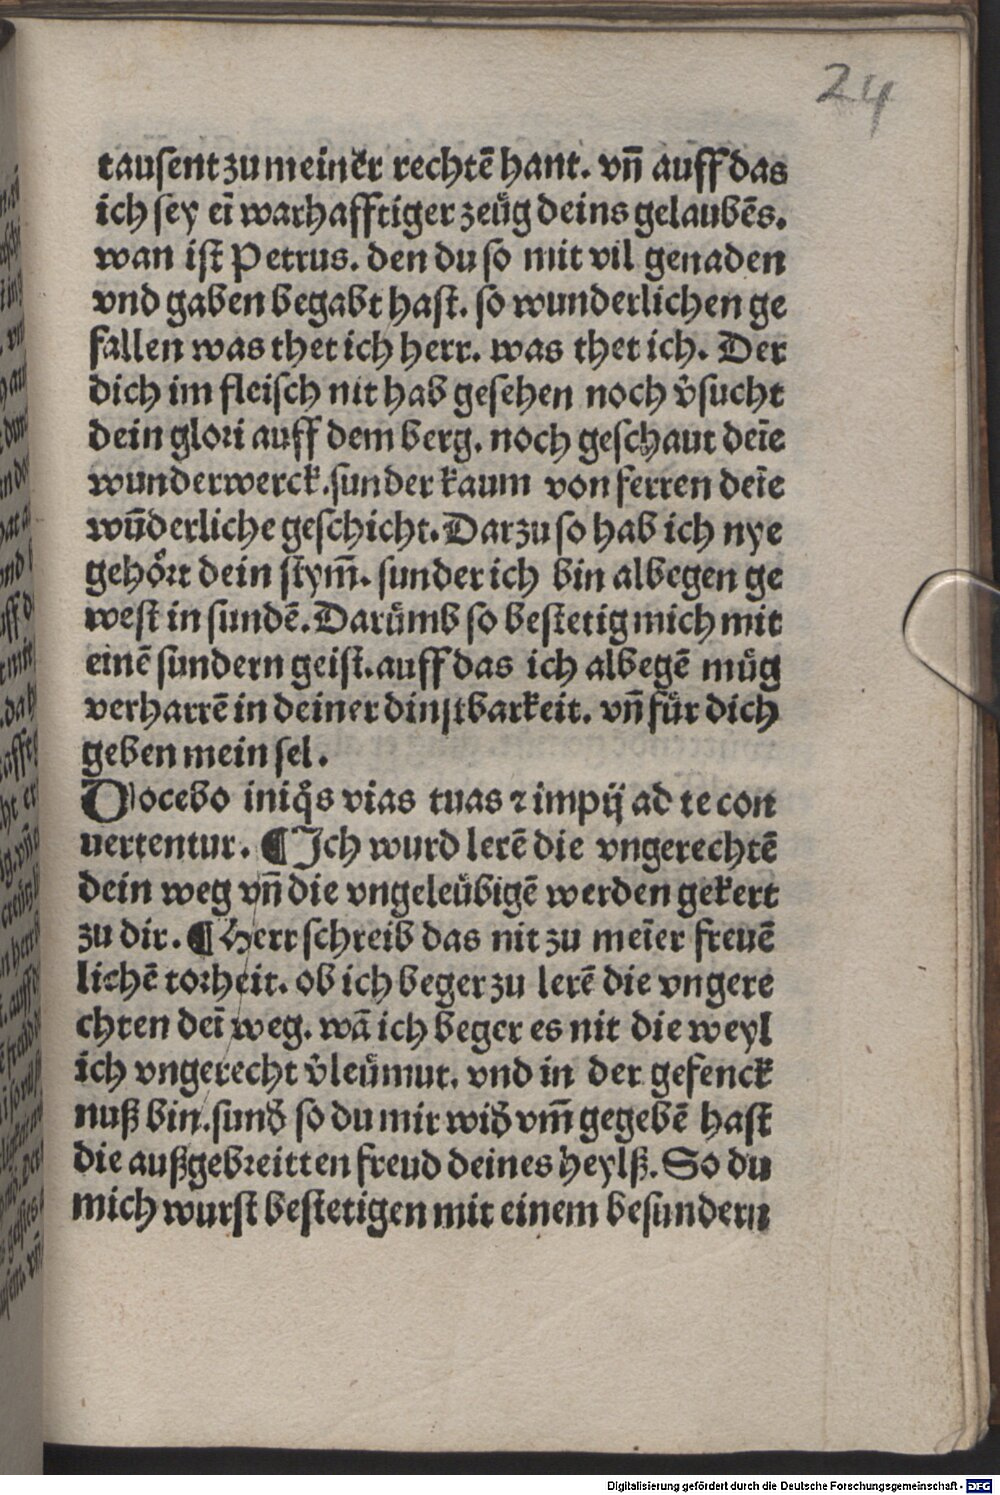 24
tausent zu meiner rechtē hant. vn̄ auff das
ich sey eī warhafftiger zeüg deins gelaubēs.
wan ist Petrus. den du so mit vil genaden
vnd gaben begabt hast. so wunderlichen ge
fallen was thet ich herr. was thet ich. Der
dich im fleisch nit hab gesehen noch v̉sucht
dein glori auff dem berg. noch geschaut deīe
wunderwerck. sunder kaum von ferren deīe
wūderliche geschicht. Darzu so hab ich nye
gehoͤrt dein stym̄. sunder ich bin albegen ge
west in sundē. Darümb so bestetig mich mit
einē sundern geist. auff das ich albegē müg
verharrē in deiner dinstbarkeit. vn̄ für dich
geben mein sel.
Docebo iniq̊s vias tuas ⁊ impij ad te con
uertentur. ¶ Ich wurd lerē die vngerechtē
dein weg vn̄ die vngeleübigē werden gekert
zu dir. ¶ Herr schreib das nit zu meīer freuē
lichē torheit. ob ich beger zu lerē die vngere
chten deī weg. wā ich beger es nit die weyl
ich vngerecht v̉leümut. vnd in der gefenck
nuß bin. sunð so du mir wið vm̄ gegebē hast
die außgebreitten freud deines heylß. So du
mich wurst bestetigen mit einem besundern
Digitalisierung gefördert durch die Deutsche Forschungsgemeinschaft - DFG